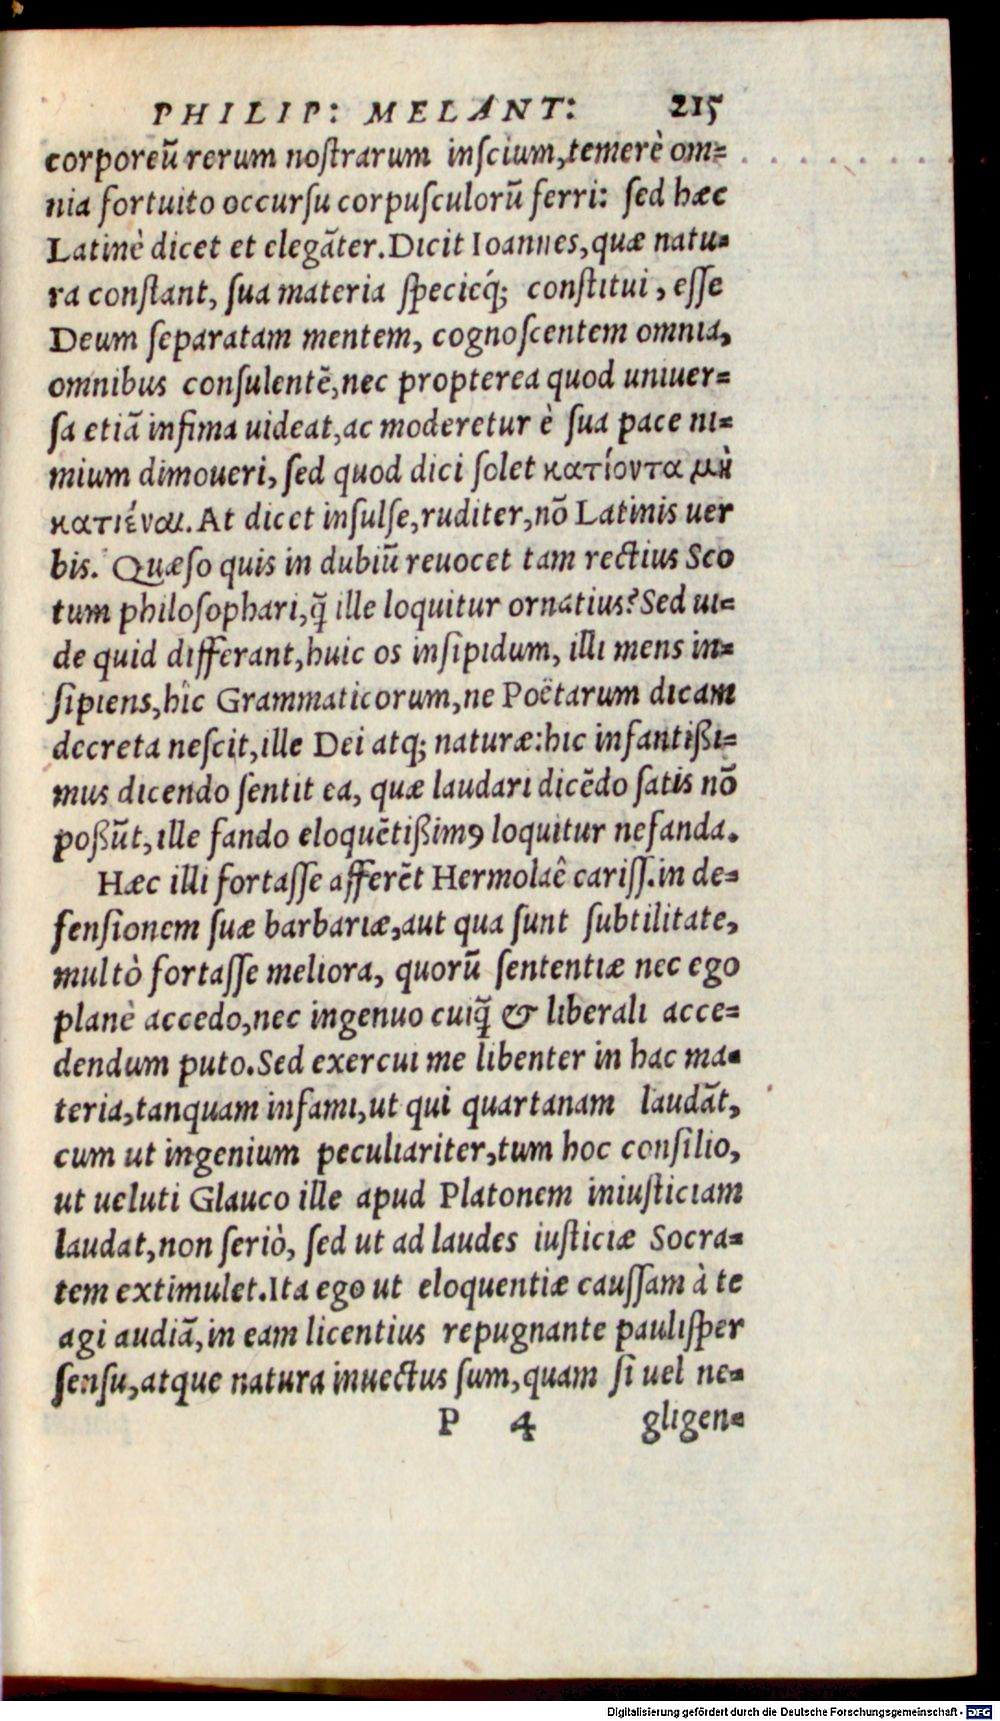 PHILIP: MELANT: 215
corporeũ rerum noſtrarum inſcium,temerè om=
nia fortuito occurſu corpuſculorũ ferri: ſed hæc
Latinè dicet et elegãter.Dicit Ioannes,quæ natu=
ra conſtant, ſua materia ſpecieq́; conſtitui, eſſe
Deum ſeparatam mentem, cognoſcentem omnia,
omnibus conſulentẽ,nec propterea quod uniuer=
ſa etiã infima uideat,ac moderetur è ſua pace ni=
mium dimoueri, ſed quod dici ſolet κατίοντα μὴ
κατιέναι.At dicet inſulſe,ruditer,nõ Latinis uer
bis. Quæſo quis in dubiũ reuocet tam rectius Sco
tum philoſophari,q̃ ille loquitur ornatius? Sed ui=
de quid differant,huic os inſipidum, illi mens in=
ſipiens,hic Grammaticorum,ne Poëtarum dicam
decreta neſcit,ille Dei atq; naturæ:hic infantißi=
mus dicendo ſentit ea, quæ laudari dicẽdo ſatis nõ
poßũt,ille fando eloquẽtißimꝰ loquitur nefanda.
Hæc illi fortaſſe afferẽt Hermolaê cariſſ.in de=
fenſionem ſuæ barbariæ,aut qua ſunt ſubtilitate,
multò fortaſſe meliora, quorũ ſententiæ nec ego
planè accedo,nec ingenuo cuiq̃ & liberali acce=
dendum puto.Sed exercui me libenter in hac ma=
teria,tanquam infami,ut qui quartanam laudãt,
cum ut ingenium peculiariter,tum hoc conſilio,
ut ueluti Glauco ille apud Platonem iniuſticiam
laudat,non ſeriò, ſed ut ad laudes iuſticiæ Socra=
tem extimulet.Ita ego ut eloquentiæ cauſſam à te
agi audiã,in eam licentius repugnante pauliſper
ſenſu,atque natura inuectus ſum,quam ſi uel ne=
P 4 gligen=
Digitalisierung gefördert durch die Deutsche Forschungsgemeinschaft - DFG